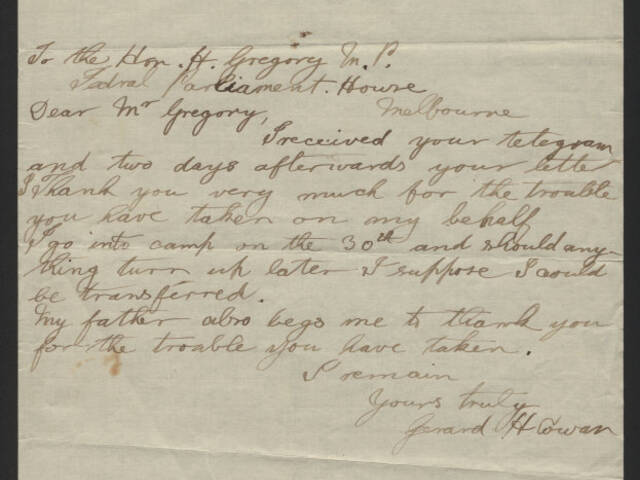 To the Hon. H. Gregory M.P.
Fedral Parliament. House
Melbourne
Dear Mr Gregory,
I received your telegram
and two days afterwards your letter
I Thank you very much for the trouble
you have taken on my behalf
I go into camp on the 30th and should any-
thing turn up later I suppose I could
be transferred.
My father also begs me to thank you
for the trouble you have taken.
I remain
Yours truly
Gerard H Cowan